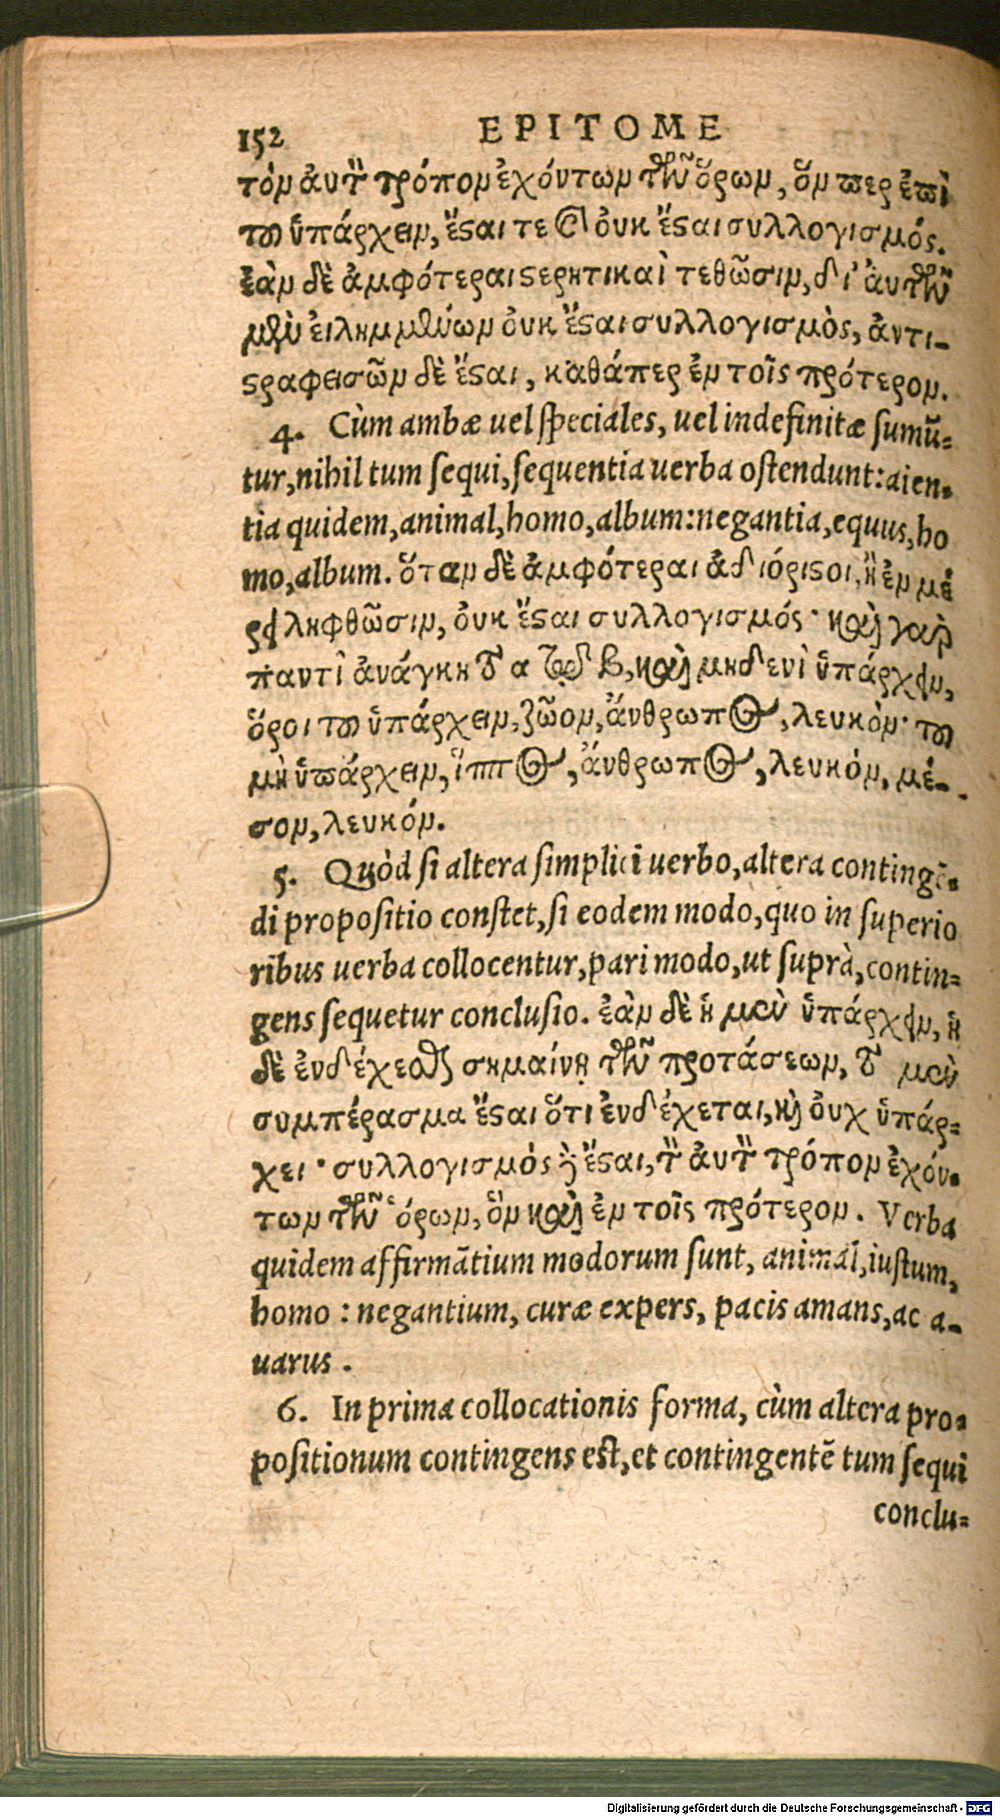 152 EPITOME
τὸν ἀυτὸν τρόπον ἐχόντων τῶν ὅρων, ὅν περ ἐπὶ
τοῦ ὑπάρχειν, ἔσται τε καὶ ὀυκ ἔσται συλλογισμός.
ἐὰν δὲ ἀμφότεραι στερητικαὶ τεθῶσιν, δι' ἀυτῶν
μὲν ἐιλημμένων ὀυκ ἔσται συλλογισμὸς, ἀντι-
στραφεισῶν δὲ ἔσται, καθάπερ ἐν τοῖς πρότερον.
4. Cùm ambæ uel speciales, uel indefinitæ sumũ=
tur, nihil tum sequi, sequentia uerba ostendunt: aien-
tia quidem, animal, homo, album: negantia, equus, ho
mo, album. ὅταν δὲ ἀμφότεραι ἀδιόριστοι, ἢ ἐν μέ
ρει ληφθῶσιν, ὀυκ ἔσται συλλογισμός· καὶ γὰρ
παντὶ ἀνάγκη τὸ α τῷ β, καὶ μηδενὶ ὑπάρχειν,
ὅροι τοῦ ὑπάρχειν, ζῶον, ἄνθρωπος, λευκὸν· τοῦ
μὴ ὑπάρχειν, ἵππος, ἄνθρωπος, λευκόν, μέ-
σον, λευκόν.
5. Quòd si altera simplici uerbo, altera contingẽ-
di propositio constet, si eodem modo, quo in superio
ribus uerba collocentur, pari modo, ut suprà, contin=
gens sequetur conclusio. ἐὰν δὲ ἡ μὲν ὑπάρχειν, ἡ
δὲ ἐνδέχεσθαι σημαίνῃ τῶν προτάσεων, τὸ μὲν
συμπέρασμα ἔσται ὅτι ἐνδέχεται, καὶ ὀυχ ὑπάρ=
χει· συλλογισμὸς δ' ἔσται, τὸν ἀυτὸν τρόπον ἐχόν-
των τῶν ὅρων, ὃν καὶ ἐν τοῖς πρότερον. Verba
quidem affirmãtium modorum sunt, animal, iustum,
homo: negantium, curæ expers, pacis amans, ac a-
uarus.
6. In prima collocationis forma, cùm altera pro-
positionum contingens est, et contingentẽ tum sequi
conclu=
Digitalisierung gefördert durch die Deutsche Forschungsgemeinschaft - DFG